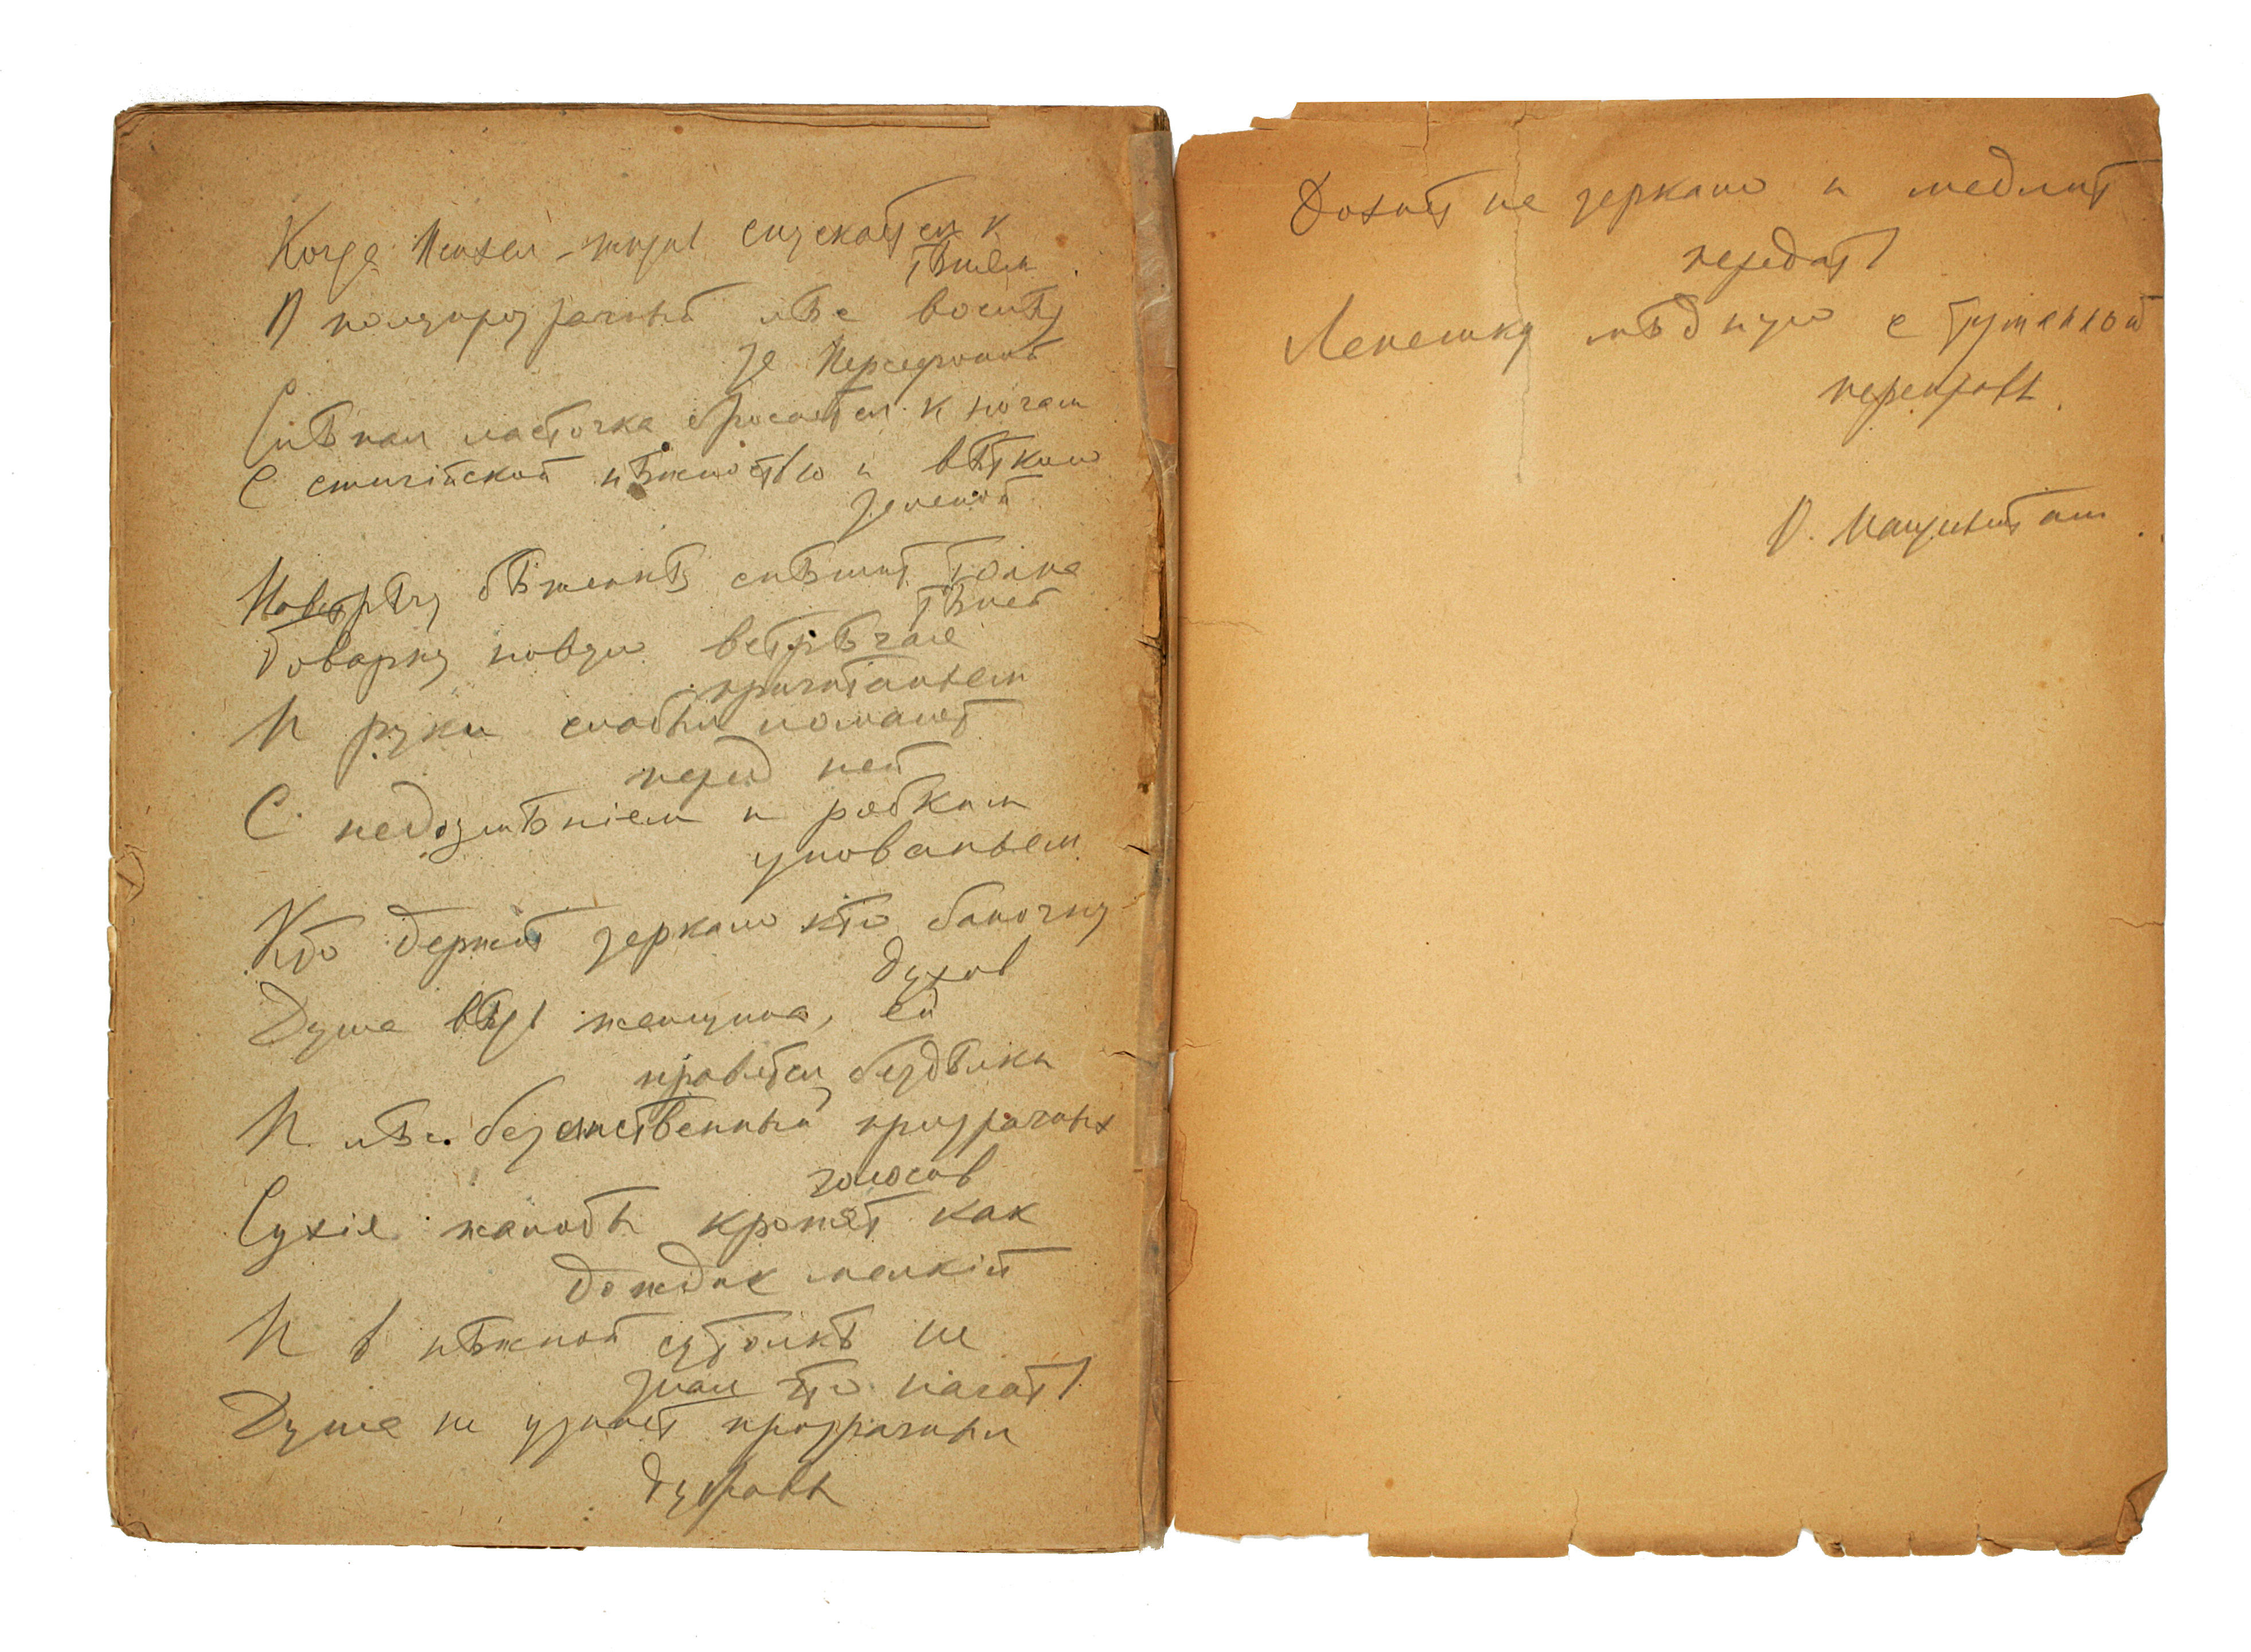 Когда Психея-жизнь спускается к
тѣням
В полупрозрачный лѣс вослѣд
за Персефоной
Слѣпая ласточка бросается к ногам
С стигійской нѣжностью и вѣткою
зеленой
Навстрѣчу бѣженкѣ спѣшит толпа
тѣней
Товарку новую встрѣчая
причитаньем
И руки слабыя ломают
перед ней
С недоумѣніем и робким
упованьем
Кто держит зеркало кто баночку
духов
Душа вѣдь женщина, ей
нравятся бездѣлки
И лѣс безлиственный прозрачных
голосов
Сухія жалобы кропят как
дождик мелкій
И в нѣжной сутолкѣ не
зная что начать
Душа не узнает прозрачныя
дубравы
Дохнет на зеркало и медлит
передать
Лепешку мѣдную с туманной
переправы.
О. Мандельштам